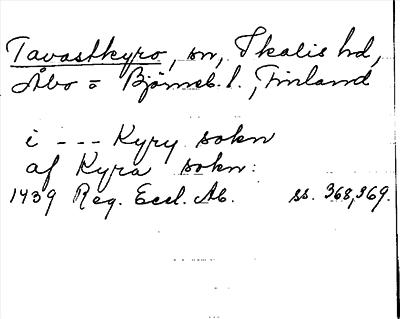 Tavastkyro, sn, Ikalis hd,
Åbo = Björneb. l., Finland
i - - - Kyry sokn
af Kyra sokn:
1439 Reg. Eccl. Ab. ss. 368,369.